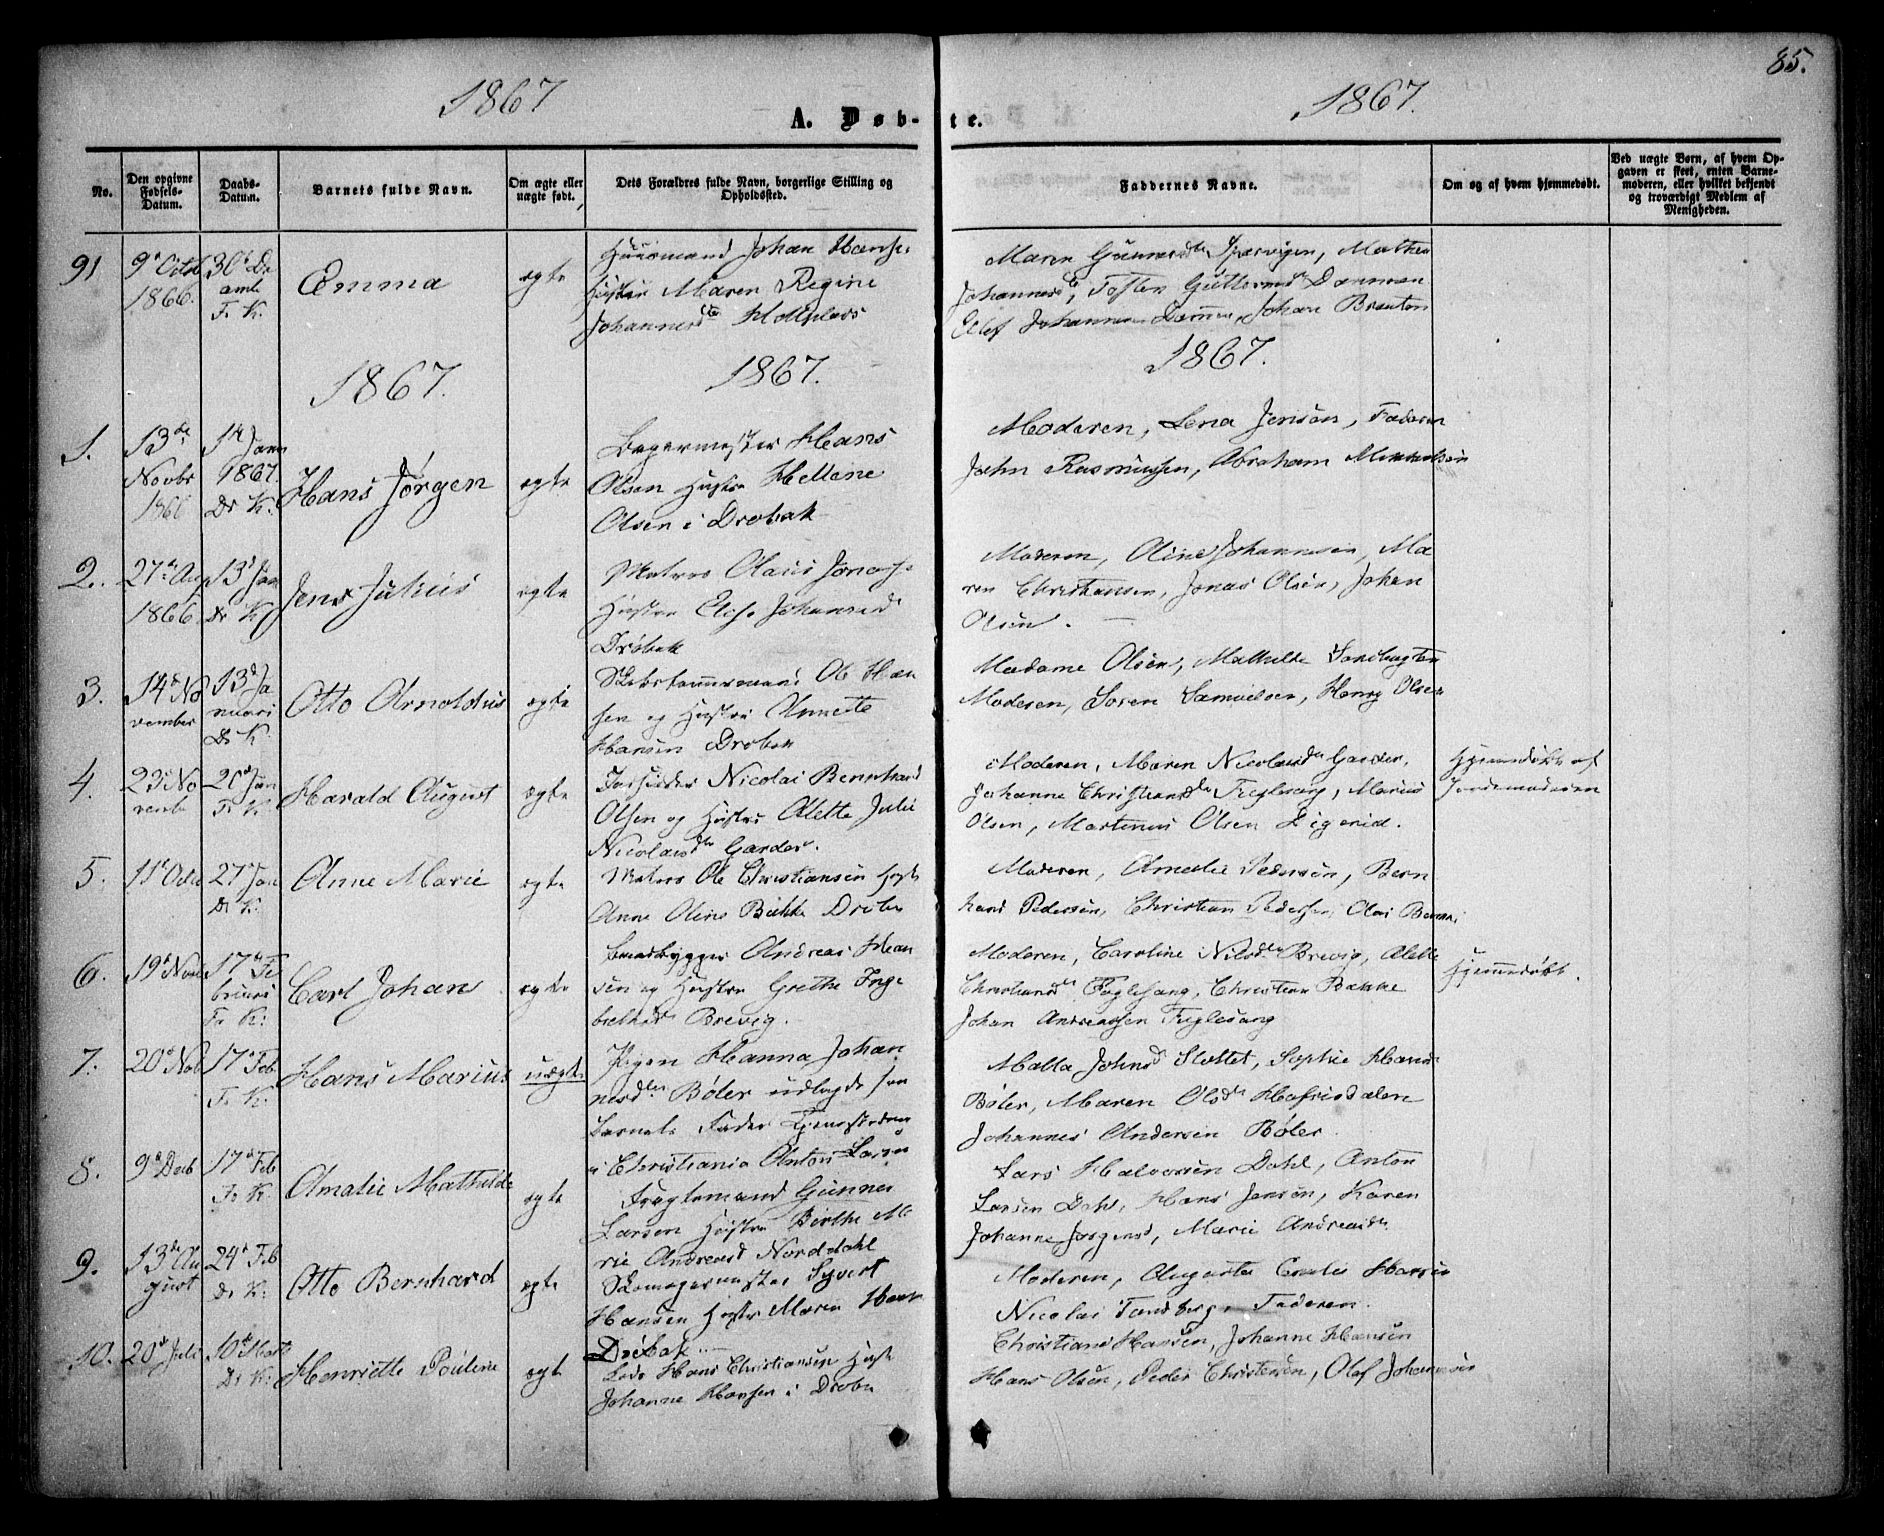 85.
1867
1867.
A. Døb-
te.
No.
Den opgivne Fødsels-Datum.
Daabs-Datum.
Barnets fulde Navn.
Om ægte eller uægte født.
Dets Forældres fulde Navn, borgerlige Stilling og Opholdssted.
Faddernes Navne.
Om og af hvem hjemmedøbt.
Ved uægte Børn, af hvem Opgaven er skeet, enten Barnemoderen, eller hvilket bekjendt og troværdigt Medlem af Menigheden.
91
9d Octb 1866.
30d De
F. K.
Emma
ægte
Huusmand Johan Hanse
Hustru Maren Regine
Johannesdtr Holtplads
Maren Gunnersdtr Spærvigen, Mathea
Johannesdtr, Toften Guttormsd Dammen
Johannes Dammen, Johan Braaten
1867.
1867.
1867.
1.
13de Novbr 1866
1d Janr 1867. Dr K.
Hans Jørgen
ægte
Bagermester Hans
Olsen Hustru Hellene
Olsen i Drøbak
Moderen, Lena Jensen, Faderen
John Rasmussen, Abraham
2.
27de Aug 1866
13d Jan Dr K.
Jens Julius
ægte
Matros Olaus Jonas
Hustru Elise Johannesd
Drøbak
Moderen, Oline Johannesen, Ma
ren Christiansen, Jonas Olsen, Johan
Olsen.
3.
14d November
13d Januari Dr K.
Otto Arnoldus
ægte
Skibstømmermand Ole Han
sen og Hustru Annette
Hansen Drøbak
Madame Olsen, Mathilde
Moderen, Søren Samuelsen, Henry Olsen
4.
23d Novembr
20d Jan F. K.
Harald August
ægte
Nicolai Bernhard
Olsen og Hustru Alette Julie
Nicolaisdtr Garder.
Moderen, Maren Nicolaisdtr Garder,
Johanne Christiansdtr Fuglesang, Marius
Olsen, Martinus Olsen Digerud.
Hjemmedøbt af
Jordemoderen
5.
11d Octbr
27d Jan Dr K.
Anne Marie
ægte
Matros Ole Christiansen Hust
Anne Oline Bakke Drøba
Moderen, Amalie Pedersen, Bern
hard Pedersen, Christian Pedersen,
6.
19d Novb
17de Februar F. K.
Carl Johan
ægte
Baadbygger Andreas Han
sen og Hustru Grethe Inge
Brevig.
Moderen, Caroline Nilsdtr Brevig, Alette
Christiansdtr Fuglesang, Christian Bakke
Johan Andreassen Fuglesang
Hjemmedøbt.
7.
20d Nob
17d Feb F. K.
Hans Marius
uægte
Pigen Hanna Johan
nesdtr Bøler udlagde som
Barnets Fader
i Christiania Anton Larsen
Malla Johnsd Slottet, Sophie Hansd
Bøler, Maren Olsdtr Hafrisdalen
Johannes Andersen Bøler
8.
9d Decb
17d Feb F. K.
Amalie Mathilde
ægte
Gunner
Larsen Hustru Birthe Ma
rie Andreasd Norddahl
Lars Halvorsen Dahl, Anton
Larsen Dahl, Hans Jensen, Karen
Johanne Jørgensd, Marie Andreasdtr
9.
13de August
24d Feb Dr K.
Otto Bernhard
ægte
Skomagermester Syvert
Hansen Hustru Maren Han
Drøbak
Moderen, Augusta
Nicolai Tandberg, Faderen.
10.
20d Juli
10de Marts Dr K.
Henriette Pouline
ægte
Lods Hans Christiansen Hust
Johanne Hansen i Drøba
Christiane Hansen, Johanne Hansen
Hans Olsen, Peder Christensen, Olaf Johannesen